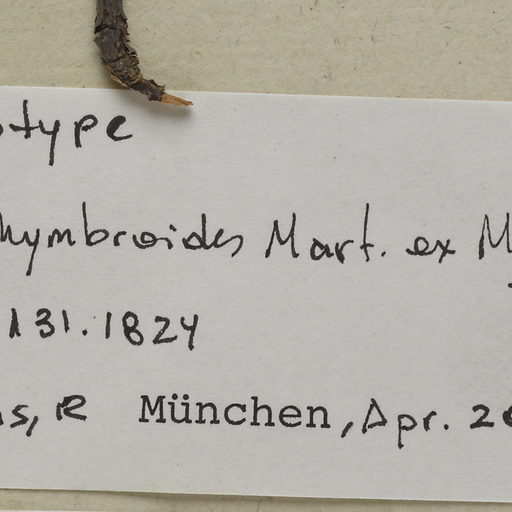 otype
hymbroides Mart. ex M
131.1824
ns, R München, Apr. 20